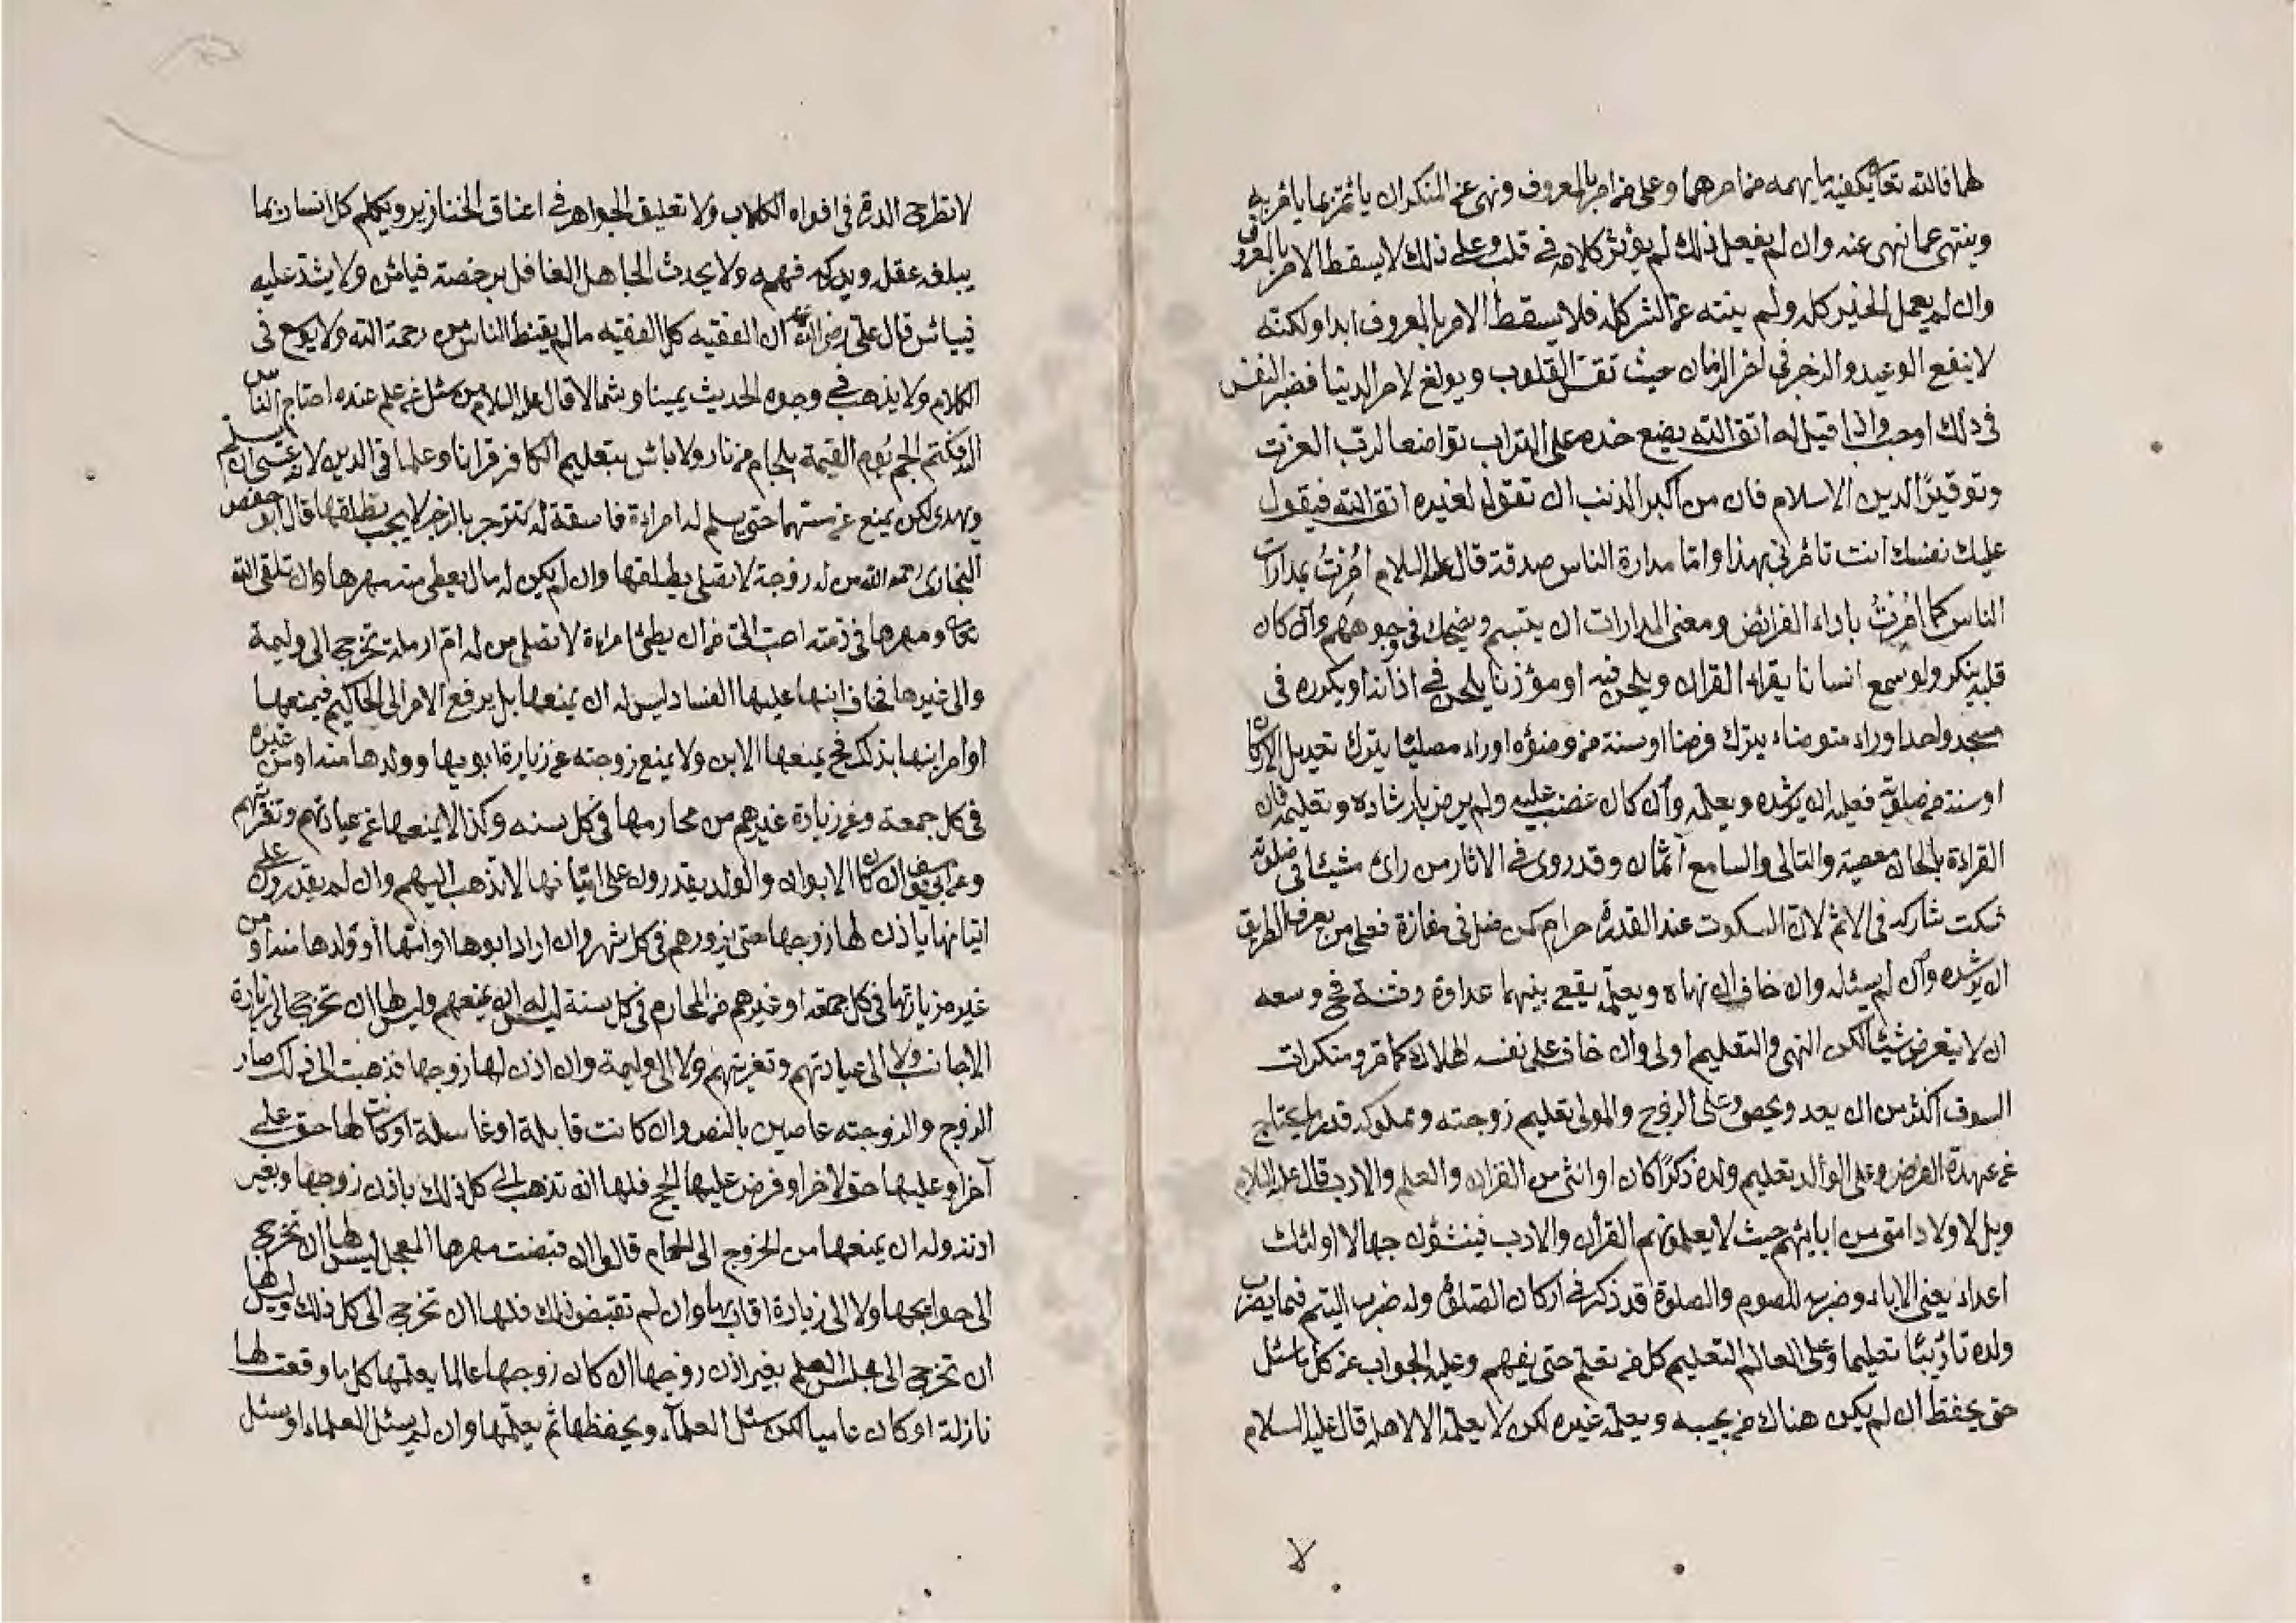 لهما فالله تعالى يكفيه ما يهمه من امرهما وعلى من امر بالمعروف ونهى عن المنكر ان ياتمر بما يامر به
وينتهى عما نهى عنه وان لم يفعل ذلك لم يؤثر كلامه فى قلب وعلى ذلك لا يسقط الامر بالمعروف
وان لم يعمل الخير كله ولم ينته عن الشر كله فلا يسقط الامر بالمعروف ابدا ولكنه
لا ينفع الوعيد والزجر فى اخر الزمان حيث القلوب ويولغ لامر الدنيا النفس
فى ذلك اوجب واذا قيل له اتق الله يضع خده على التراب تواضعا لرب العزت
وتوقيرًا لدين الاسلام فان من اكبر الذنب ان تقول لغيره اتق الله فيقول
عليك نفسك انت تأمرنى بهذا واما مدارة الناس صدقة قال عليه السلام اُمِرْتُ بمدارات
الناس كما اُمِرْتُ باداء الفرائض ومعنى المدارات ان يتبسم ويضحك فى وجوههم وان كان
قلبه ينكر ولو سمع انسانا يقراء القران ويلحن فيه او مؤذنا يلحن فى اذانه او يكرره فى
مسجد واحد او راء متوضاء يترك فرضا او سنة من وضوءه او راء مصليا يترك تعديل الاركان
او سنة من صلوته فعليه ان يرشده ويعلمه وان كان غضب عليه ولم يرض بارشاده وتعليمه فان
القراءة بالحان معصية والتالى والسامع آثمان وقد روى فى الاثار من راى شيئا فى صلوته
فسكت شاركه فى الاثم لان السكوت عند القدرة حرام كمن ضل فى مفازة فعلى من يعرف الطريق
ان يرشده وان لم يسئله وان خاف ان نهاه ويعلمه يقع بينهما عداوة وفتنة فح وسعه
ان لا يتعرض شيئا لكن النهى والتعليم اولى وان خاف على نفسه الهلاك كما مر ومنكرات
السوق اكثر من ان يعد ويحصى وعلى الزوج والمولى تعليم زوجته ومملوكه قدر ما يحتاج
عن عهدة الفرض وعلى الوالد تعليم ولده ذكرًا كان او انثى من القران والعلم والادب قال عليه السلام
ويل لاولاد امتى من ابائهم حيث لا يعلمونهم القرأن والادب فينشؤن جهالا اولئك
اعداء يعنى الاباء وضربه للصوم والصلوة قد ذكر فى اركان الصلوة وله ضرب اليتيم فيما يضرب
ولده تأديبًا تعليما وعلى العالم التعليم كل من تعلم حتى يفهم وعليه الجواب عن كل ما سئل
حتى يحفظ ان لم يكن هناك من يجيبه ويعلمه غيره لكن لا يعلمه الا لاهله قال عليه السلام
لا
لا تطرح الدر فى افواه الكلاب ولا تعليق الجواهر فى اعناق الخنازير ويكلم كل انسان بما
يبلغه عقله ويدركه فهمه ولا يحدث الجاهل الغافل برخصة فيأمن ولا يشدّ عليه
فييأس قال على رضى الله عنه ان الفقيه كل الفقيه ما لم يقنط الناس من رحمة الله ولا يوجع فى
الكلام ولا يذهب فى وجوه الحديث يمينا وشمالا قال عليه السلام من سئل عن علم عنده احتاج الناس
اليه فكتم الجم يوم القيمة بلجام من نار ولا باس بتعليم الكافر قرانا وعلما فى الدين لانه عسى ان يسلم
ويهدى لكن يمنع عن مسهما حتى يسلم له امراءة فاسقة لم تنزجر بالزجر لا يجب تطليقها قال ابو حفص
البخارى رحمه الله من له زوجة لا تصلى يطلقها وان لم يكن له مال يعطى منه مهرها وان تلقى الله
تعالى ومهرها فى ذمته احب الى من ان يطئ امراءة لا تصلى من له ام ارملة تخرج الى وليمة
والى غيرها فخاف ابنها عليها الفساد ليس له ان يمنعها بل يرفع الامر الى الحاكم فيمنعها
او امر ابنها بذلك فح يمنعها الابن ولا يمنع زوجته عن زيارة ابويها وولدها منه او من غيره
فى كل جمعة وعن زيارة غيرهم من محارمها فى كل سنه وكذا لا يمنعها عن عيادتهم وتعزيتهم
وعن ابى يوسف ان كان الابوان والولد يقدرون على اتيانها لا تذهب اليهم وان لم يقدرون على
اتيانها ياذن لها زوجها حتى يزورهم فى كل شهر وان اراد ابوها او امها او ولدها منه او من
غيره من زيارتها فى كل جمعة او غيرهم من المحارم فى كل سنة ليس له ان يمنعهم وليس لها ان تخرج الى زيارة
الاجانب ولا الى عيادتهم وتعزيتهم ولا الى وليمة وان اذن لها زوجها فذهبت الى ذلك صار
الزوج والزوجته عاصين بالنص وان كانت قابلة او غاسلة او كانت لها حق على
آخر او عليها حق لاخر او فرض عليها الحج فلها ان تذهب الى كل ذلك باذن زوجها وبغير
اذنه وله ان يمنعها من الخروج الى الحمام قالوا ان قبضت مهرها المعجل ليس لها ان تخرج
الى حوايجها ولا الى زيارة اقاربها وان لم تقبض ذلك فلها ان تخرج الى كل ذلك وليس لها
ان تخرج الى مجلس العلم بغير اذن زوجها ان كان زوجها عالما يعلمها كل ما وقعت لها
نازلة او كان عاميا لكن سئل العلمآء ويحفظها ثم يعلمها وان لم يسئل العلماء او سئل